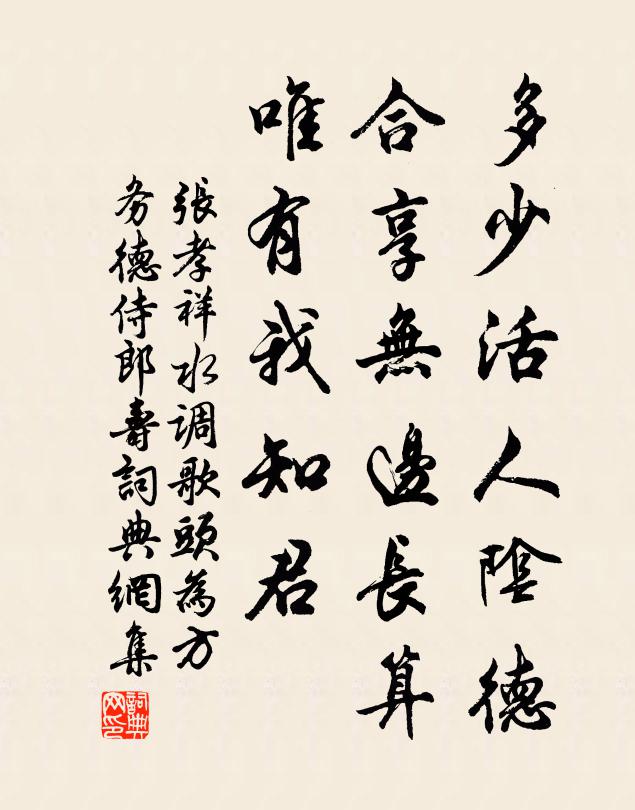 多少活人陰德
合享無邊長算
唯有我知君
張孝祥水調歌頭為方
务德侍郎壽詞典網集
詞典网印